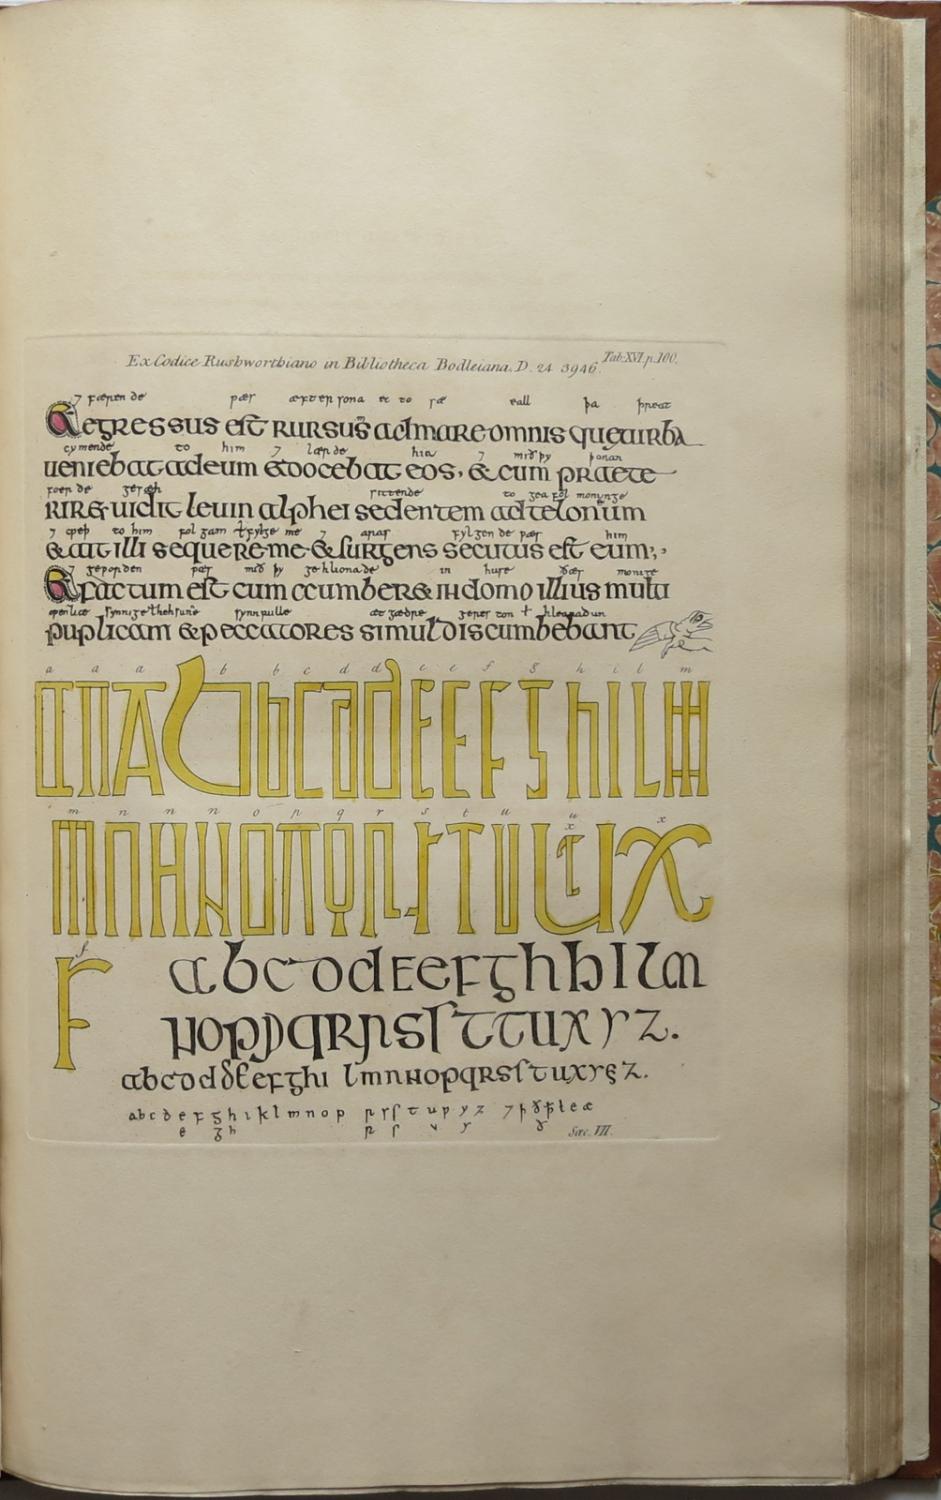 Ex Codice Rushworthiano in Bibliotheca Bodleiana. D. 24 3946. Tab. XVI. p. 100.
⁊ færen de pær æfter sona et to sæ eall þa þreat
et egressus est rursus ad mare omnis que turba
cymende to him ⁊ lærde hia ⁊ mið þy þonan
ueniebat ad eum & docebat eos, & cum praete
foer de gesæh sittende to geafol monunge
RIR& uidit leuin alphei sedentem ad teloneum
⁊ cƿeþ to him fol gam ł fylge me ⁊ aras fylgen de ƿær him
& ait illi sequere me & surgens secutus est eum;,
⁊ geƿorden ƿær mið þy gehlionade in huse ðær monige
et factum est cum ccumber& in domo illius multi
synnfulle æt gædre
puplicani & peccatores simul discumbebant
a a a b b c d d e e f g h i l m
m n n n o p q r s t u u x x
f
a b c d d e e f g h h l l m
n o p p q R n s ſ t t u x y z.
a b c d d δ e e f g h i l m n n o p q R s ſ t u x y z.
a b c d e f g h i k l m n o p r r ſ t u ƿ y z ⁊ þ
Sæc. VII.